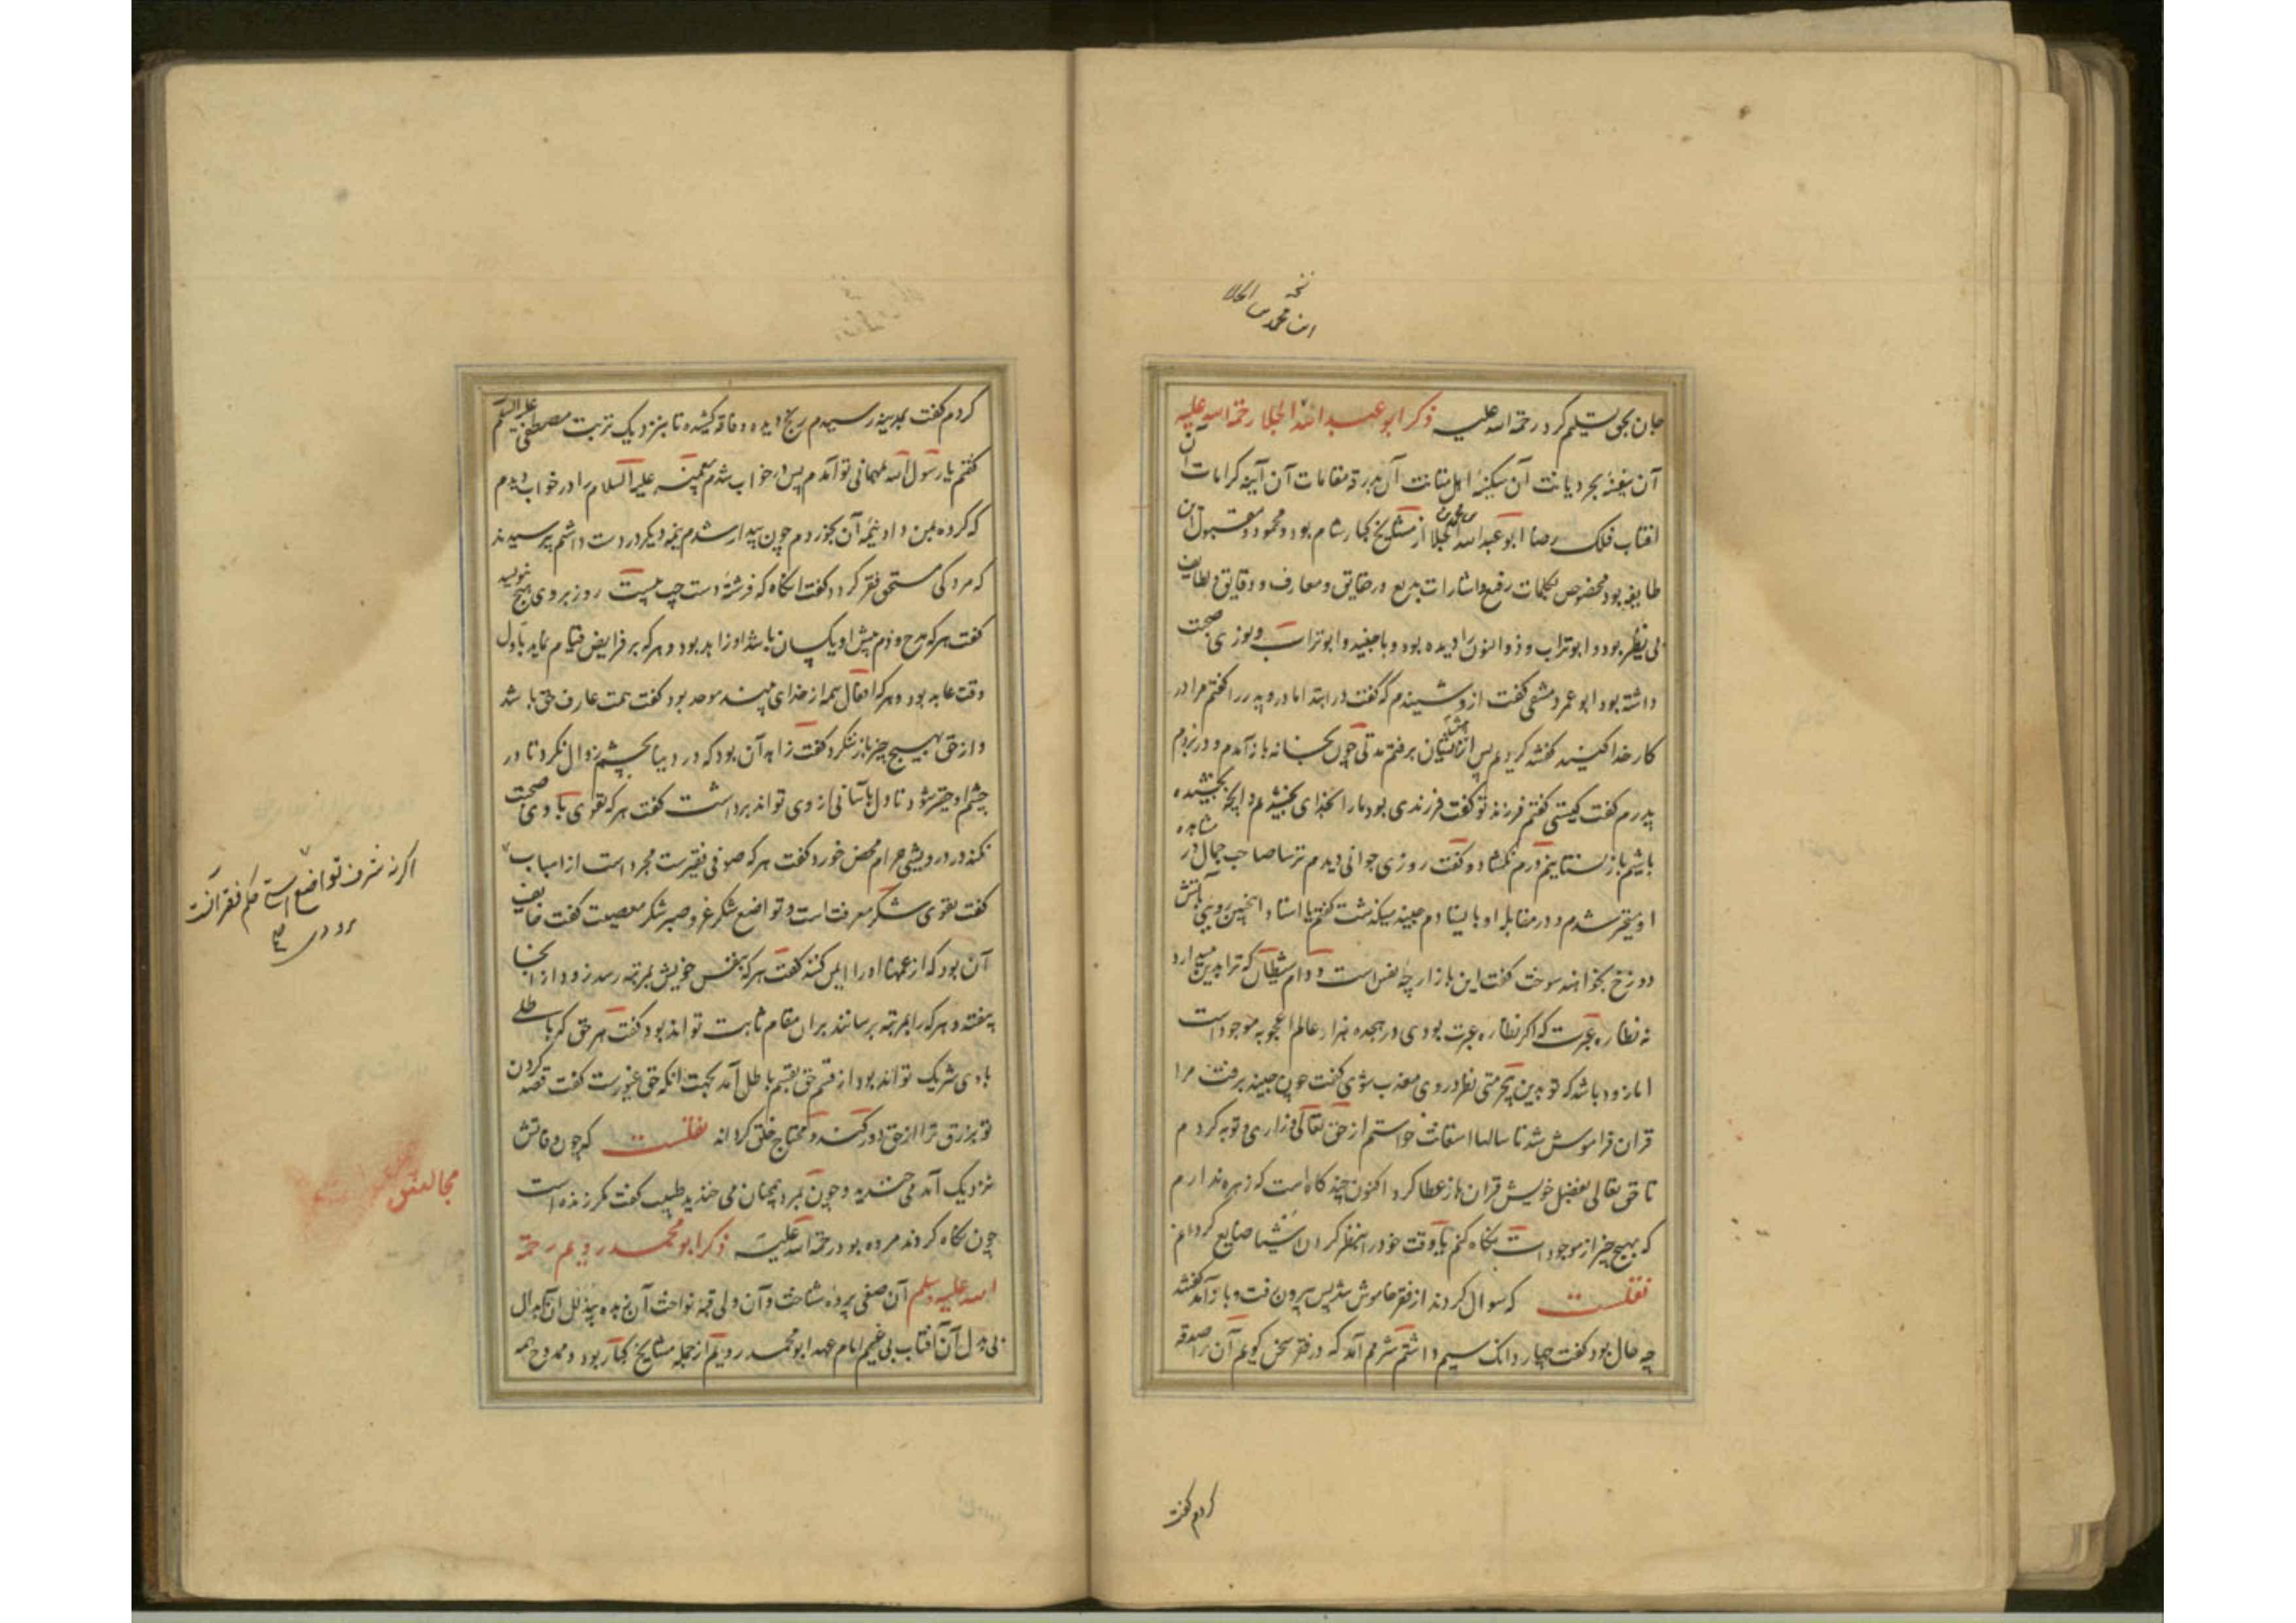 نسخه
ابن محمد بن الجلا
جان بحق تسلیم کرد رحمة الله علیه ذکر ابو عبد الله الجلا رحمة الله علیه
آن سفینهٔ بحر دیانت آن سکینهٔ اهل متانت آن بدرقهٔ مقامات آن آینه کرامات آن
افتاب فلک رضا ابو عبد الله الجلا از مشایخ کبار شام بود و محمود و مقبول این
طایفه بود و مخصوص بکلمات رفیع و اشارات بدیع و حقایق و معارف و دقایق و لطایف
بی نظیر بود و ابو تراب و ذو النون را دیده بود و با جنید و ابو تراب و نوری صحبت
داشته بود ابو عمر دمشقی گفت از وی شنیدم که گفت در ابتدا مادر و پدر را گفتم مرا در
کار خدا کنید گفتند کردیم پس از پیش ایشان برفتم مدتی چون بخانه باز آمدم و در بزدم
پدرم گفت کیستی گفتم فرزند تو گفت فرزندی بود ما را بخدای بخشیدیم و آنچه بخشیده
باشیم باز نستانیم درم نگشاد و گفت روزی جوانی دیدم ترسا صاحب جمال در مشاهده
او متحیر شدم و در مقابلهٔ او بایستادم جنید میگذشت گفتم یا استاد اینچنین رویی بآتش
دوزخ بخواهند سوخت گفت این بازارچهٔ نفس است و دام شیطان که ترا بدین میدارد
نه نظارهٔ عبرت که اگر نظارهٔ عبرت بودی در هجده هزار عالم اعجوبه موجودست
اما زود باشد که تو بدین بیحرمتی نظر در وی معذب شوی گفت چون جنید برفت مرا
قران فراموش شد تا سالها استغاثت خواستم از حق تعالی و زاری و توبه کردم
تا حق تعالی بفضل خویش قران باز عطا کرد اکنون چند گاه است که زهره ندارم
که بهیچ چیز از موجودات نگاه کنم تا وقت خود را بنظر کردن اشیا ضایع گردانم
نقلست که سوال کردند از فقر خاموش شد پس بیرون رفت و باز آمد گفتند
چه حال بود گفت چهار دانک سیم داشتم شرمم آمد که در فقر سخن گویم آن را صدقه
کردم گفت
کردم گفت بمدینه رسیدم رنج دیده و فاقه کشیده تا بنزدیک تربت مصطفی علیه السلم
گفتم یا رسول الله بمهمانی تو آمدم پس در خواب شدم پیغمبر علیه السلام را در خواب دیدم
که گرده بمن داد نیمهٔ آن بخوردم چون بیدار شدم نیمه دیگر در دست داشتم پرسیدند
که مرد کی مستحق فقر گردد گفت انگاه که فرشتهٔ دست چپ بیست روز بر وی هیچ ننویسد
گفت هر که مدح و ذم پیش او یکسان باشد او زاهد بود و هر که بر فرایض قیام نماید باول
وقت عابد بود و هر که افعال همه از خدای بیند موحد بود گفت همت عارف حق باشد
و از حق بهیچ چیز باز ننگرد گفت زاهد آن بود که در دنیا بچشم زوال نگرد تا در
چشم او حقیر شود تا دل بآسانی از وی تواند برداشت گفت هر که تقوی با وی صحبت
نکند در درویشی حرام محض خورد گفت هر که صوفی فقیرست مجرد است از اسباب
گفت تقوی شکر معرفت است و تواضع شکر عز و صبر شکر مصیبت گفت خایف
آن بود که از غمها او را ایمن کنند گفت هر که بنفس خویش بمرتبه رسد زود از انجا
بیفتد و هر که را بمرتبه برسانند بران مقام ثابت تواند بود گفت هر حق که باطلی
با وی شریک تواند بود از قسم حق بقسم باطل آمد بجهت انکه حق غیورست گفت قصد کردن
تو برزق ترا از حق دور کند و محتاج خلق گرداند نقلست که چون وفاتش
نزدیک آمد می خندید و چون بمرد همچنان می خندید طبیب گفت مگر زنده است
چون نگاه کردند مرده بود رحمة الله علیه ذکر ابو محمد رویم رحمة
الله علیه وسلم آن صفی پردهٔ شناخت و آن ولی قبهٔ نواخت آن زنده بیذلل ان بدال
بی بدل آن آفتاب بی غیم امام عهد ابو محمد رویم از جمله مشایخ کبار بود و ممدوح همه
اگر نه شرف تواضع استی حکم فقر آنست